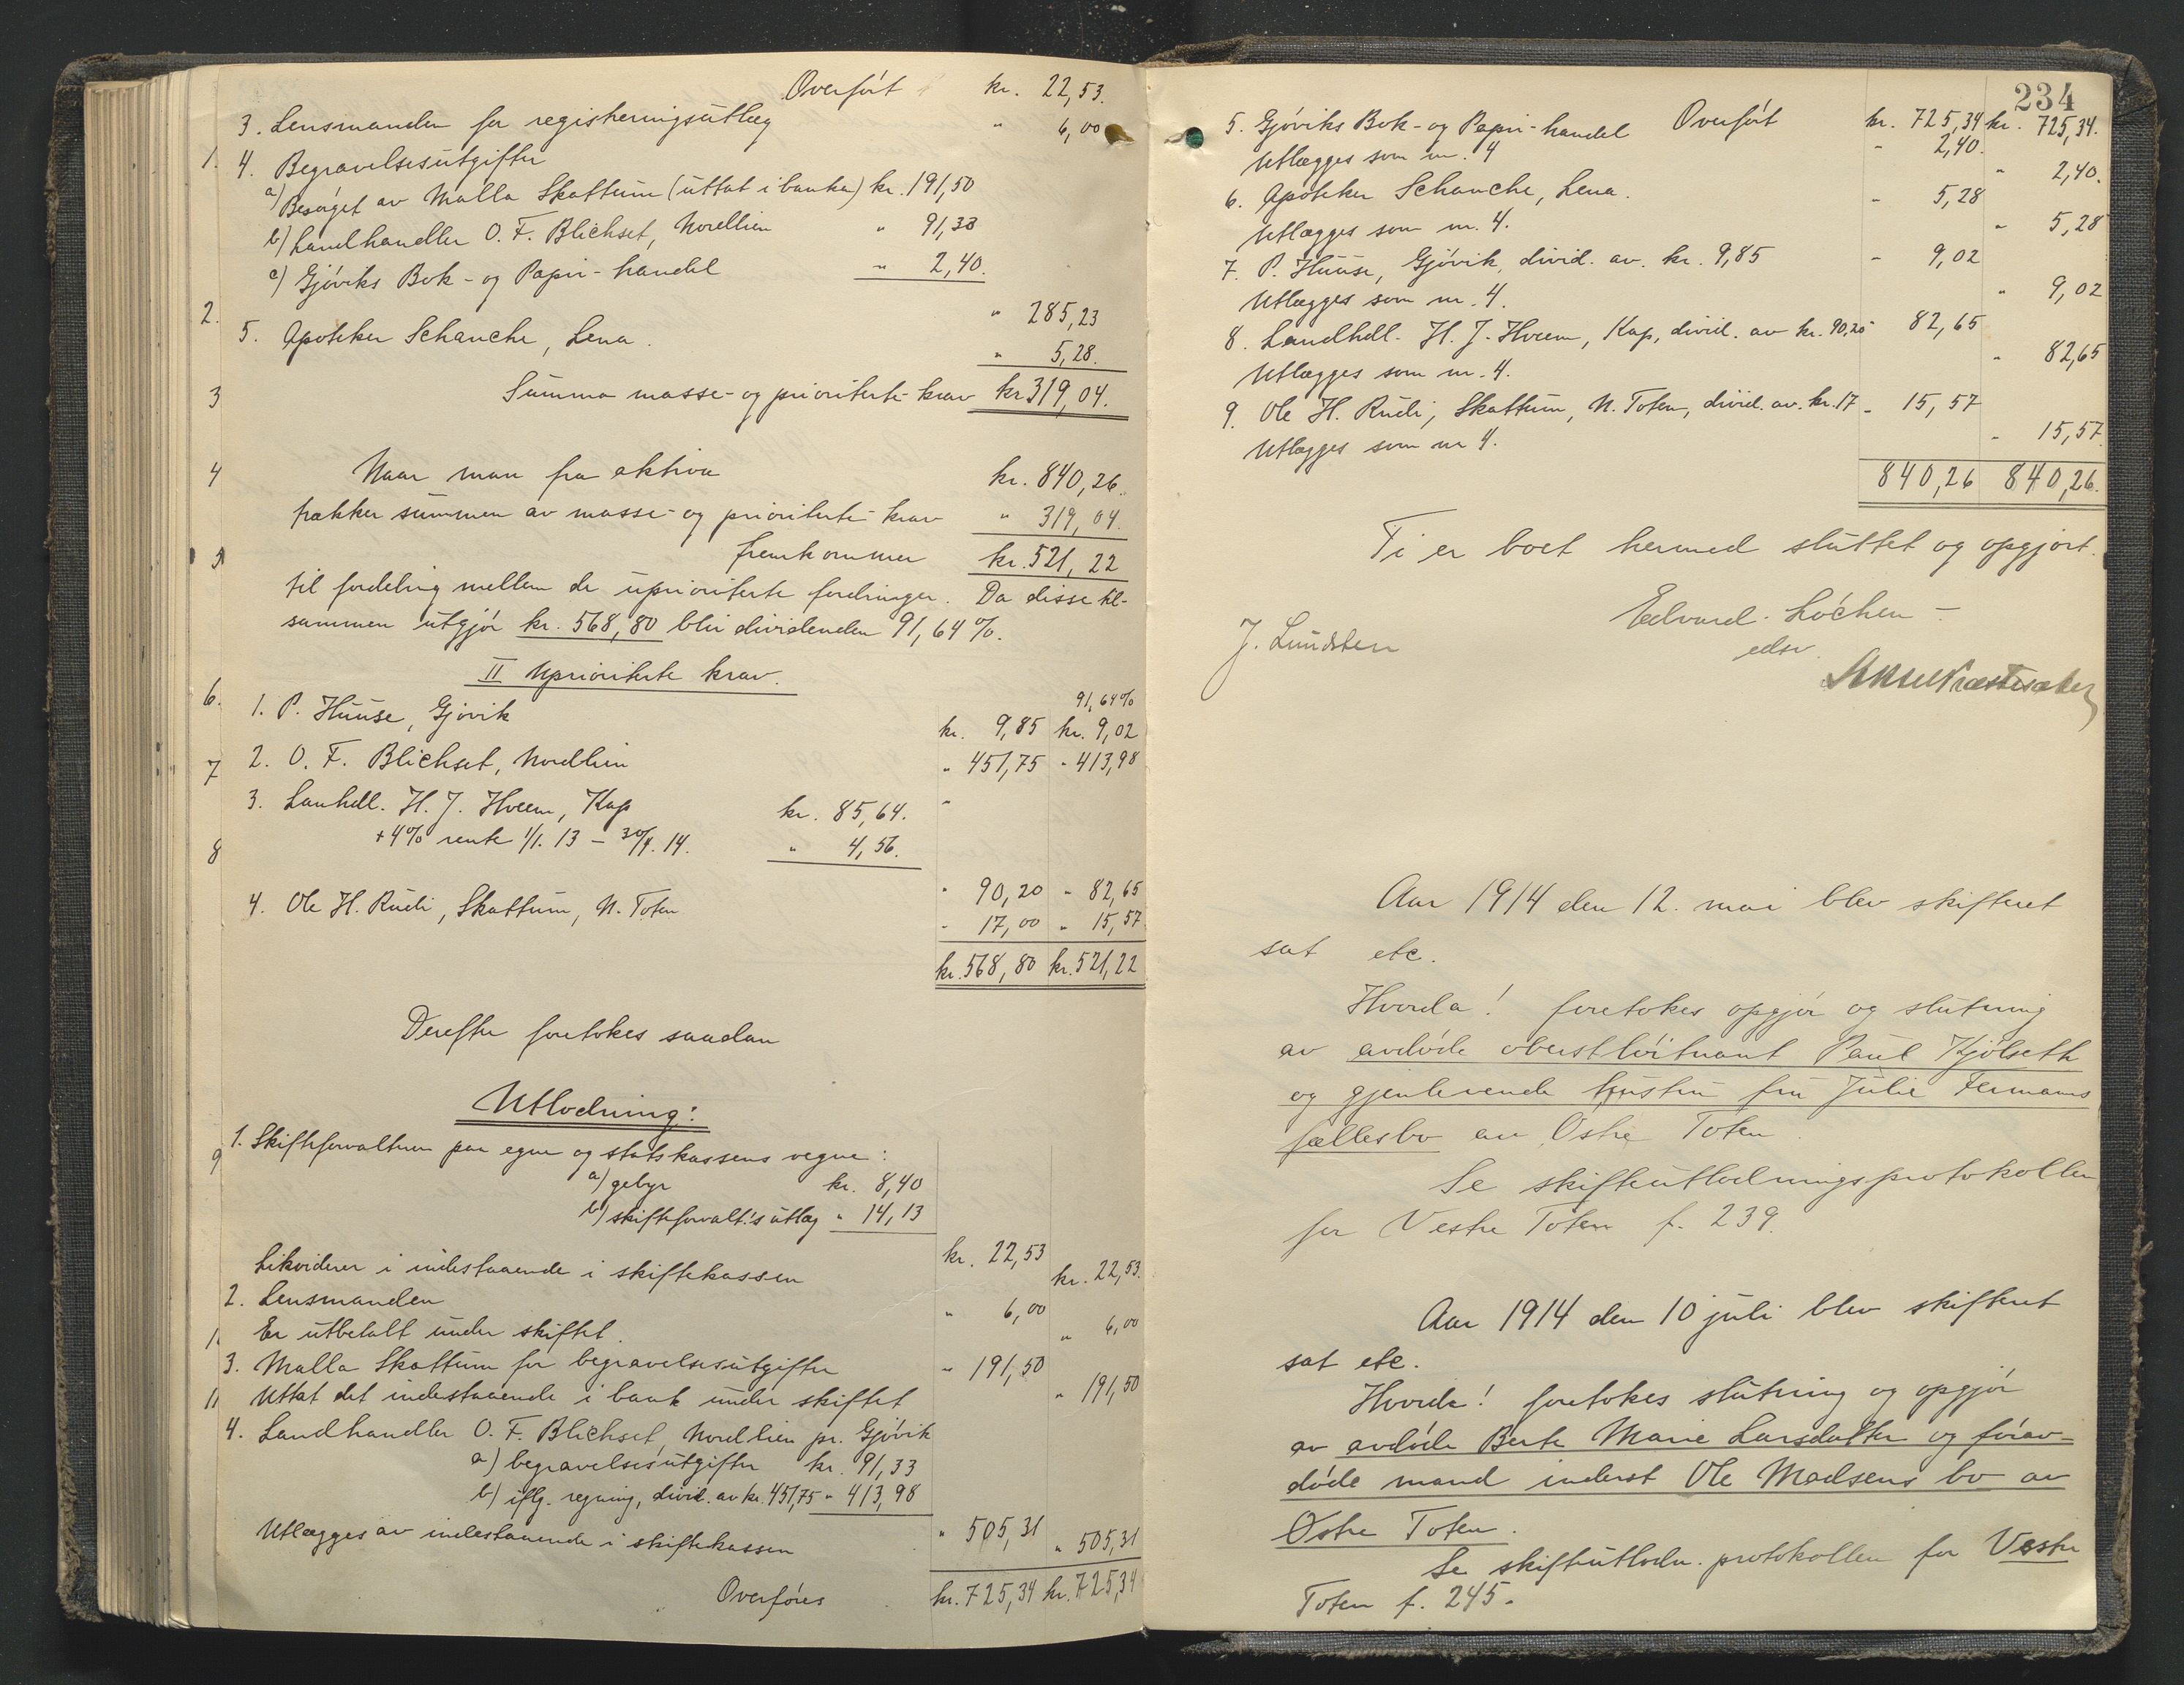 Overført kr. 22,53.
3. Lensmanden for registreringsutlæg " 6,00
1. 4. Begravelsesutgifter
a) Besørget av Malla Skattum (uttat i banken) kr. 191,50
b) Landhandler O. F. Blichset, Nordlien " 91,33
c) Gjøviks Bok- og Papir-handel " 2,40.
2. " 285,23
5. Apoteker Schanche, Lena. " 5,28.
3 Summa masse- og prioriterte krav kr 319,04.
4 Naar man fra aktiva kr. 840,26.
trækker summen av masse- og prioriterte krav " 319,04.
5 fremkommer kr. 521,22
til fordeling mellem de uprioriterte fordringer. Da disse til-
sammen utgjør kr. 568,80 blir dividenden 91,64 %.
II Uprioriterte krav.
91,64 %
6. 1. P. Huuse, Gjøvik kr. 9,85 kr. 9,02
7 2. O. F. Blichset, Nordlien " 451,75 " 413,98
3. Lanhdl. H. J. Hveem, Kap kr. 85,64. "
8 + 4% rente 1/1. 13 – 30/4. 14. " 4,56.
" 90,20 " 82,65
4. Ole H. Rudi, Skattum, N. Toten " 17,00 " 15,57
kr. 568,80 kr. 521,22
Derefter foretokes saadan
Utlodning:
9 1. Skifteforvalteren paa egne og statskassens vegne:
a) gebyr kr. 8,40
b) skifteforvalt.'s utlæg " 14,13
kr. 22,53
Likviderer i indestaaende i skiftekassen kr. 22,53.
2. Lensmanden " 6,00
1 Er utbetalt under skiftet. " 6,00
3. Malla Skattum for begravelsesutgifter " 191,50
11 Uttat det indestaaende i bank under skiftet " 191,50
4. Landhandler O. F. Blichset, Nordlien pr. Gjøvik
a) begravelsesutgifter kr. 91,33
b) iflg. regning, divid. av kr. 451,75 " 413,98
" 505,31
Utlægges av indestaaende i skiftekassen " 505,31
Overføres kr. 725,34 kr. 725,34
234
Overført kr. 725,34 kr. 725,34.
5. Gjøviks Bok- og Papir-handel " 2,40.
Utlægges som nr. 4 " 2,40.
6. Apoteker Schanche, Lena. " 5,28
Utlægges som nr. 4. " 5,28
7. P. Huuse, Gjøvik, divid. av kr. 9,85 " 9,02
Utlægges som nr. 4. " 9,02
8. Landhdl. H. J. Hveem, Kap, divid. av kr. 90,20 82,65
Utlægges som nr. 4. " 82,65
9. Ole H. Rudi, Skattum, N. Toten, divid. av. kr. 17 " 15,57
Utlægges som nr 4. " 15,57
840,26 840,26.
Ti er boet hermed sluttet og opgjort.
Edvard Løchen –
edsv.
J. Lundsten
Aar 1914 den 12. mai blev skifteret
sat etc.
Hvorda! foretokes opgjør og slutning
av avdøde oberstløitnant Paul Kjølseth
og gjenlevende hustru fru Julie Fermanns
fællesbo av Østre Toten.
Se skifteutlodningsprotokollen
for Vestre Toten f. 239.
Aar 1914 den 10 juli blev skifteret
sat etc.
Hvorda! foretokes slutning og opgjør
av avdøde Berte Marie Larsdatter og førav-
døde mand inderst Ole Madsens bo av
Østre Toten.
Se skifteutlodn. protokollen for Vestre
Toten f. 245.